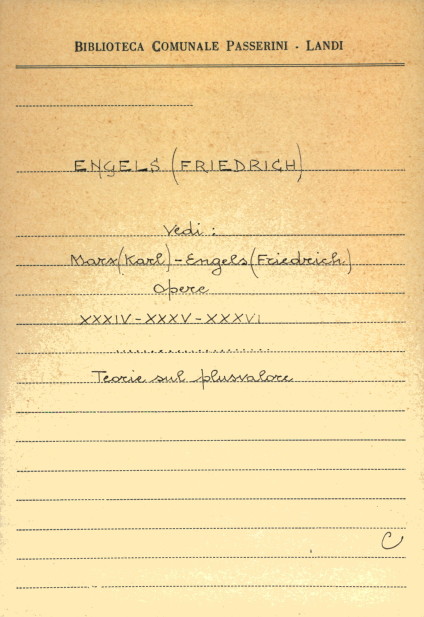 BIBLIOTECA COMUNALE PASSERINI - LANDI
ENGELS (FRIEDRICH)
Vedi :
Marx (Karl) - Engels (Friedrich)
Opere
XXXIV - XXXV - XXXVI
......................
Teorie sul plusvalore
C